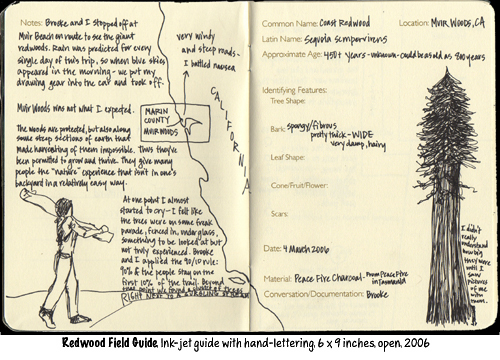 Notes: Brooke and I stopped off at
Muir Beach on route to see the giant
redwoods. Rain was predicted for every
single day of this trip, so when blue skies
appeared in the morning - we put my
drawing gear into the car and took off.
Muir Woods was not what I expected.
The woods are protected, but also along
some steep sections of earth that
made harvesting of them impossible. Thus they've
been permitted to grow and thrive. They give many
people the "nature" experience that isn't in one's
backyard in a relatively easy way.
At one point I almost
started to cry - I felt like
the trees were on some freak
parade, fenced in, under glass,
something to be looked at but
not truly experienced. Brooke
and I applied the 90/10 rule:
90% of the people stay on the
first 10% of the trail. Beyond
that point we found a cluster of trees
RIGHT NEXT TO A GURGLING STREAM
very windy
and steep roads -
I battled nausea
MARIN
COUNTY
MUIR WOODS
CALIFORNIA
Common Name: Coast Redwood
Location: MUIR WOODS, CA
Latin Name: Sequoia sempervirens
Approximate Age: 450+ years - unknown - could be as old as 800 years
Identifying Features:
Tree Shape:
Bark: spongy/fibrous
pretty thick - WIDE
very damp, hairy
Leaf Shape:
Cone/Fruit/Flower:
Scars:
Date: 4 March 2006
Material: Peace Fire Charcoal - from Peace Fire
in Tasmania
Conversation/Documentation: Brooke
I didn't
really
understand
how big
they were
until I
saw
pictures
of me
with them.
Redwood Field Guide. Ink-jet guide with hand-lettering. 6 x 9 inches, open. 2006